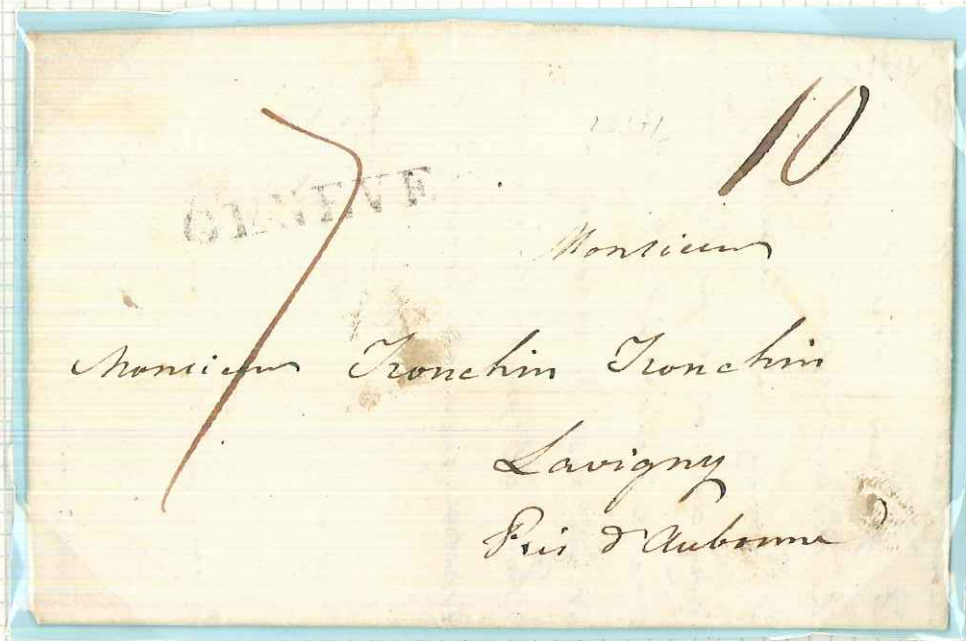 10
7
GENEVE
Monsieur
Monsieur Tronchin Tronchin
Lavigny
Près d'Aubonne